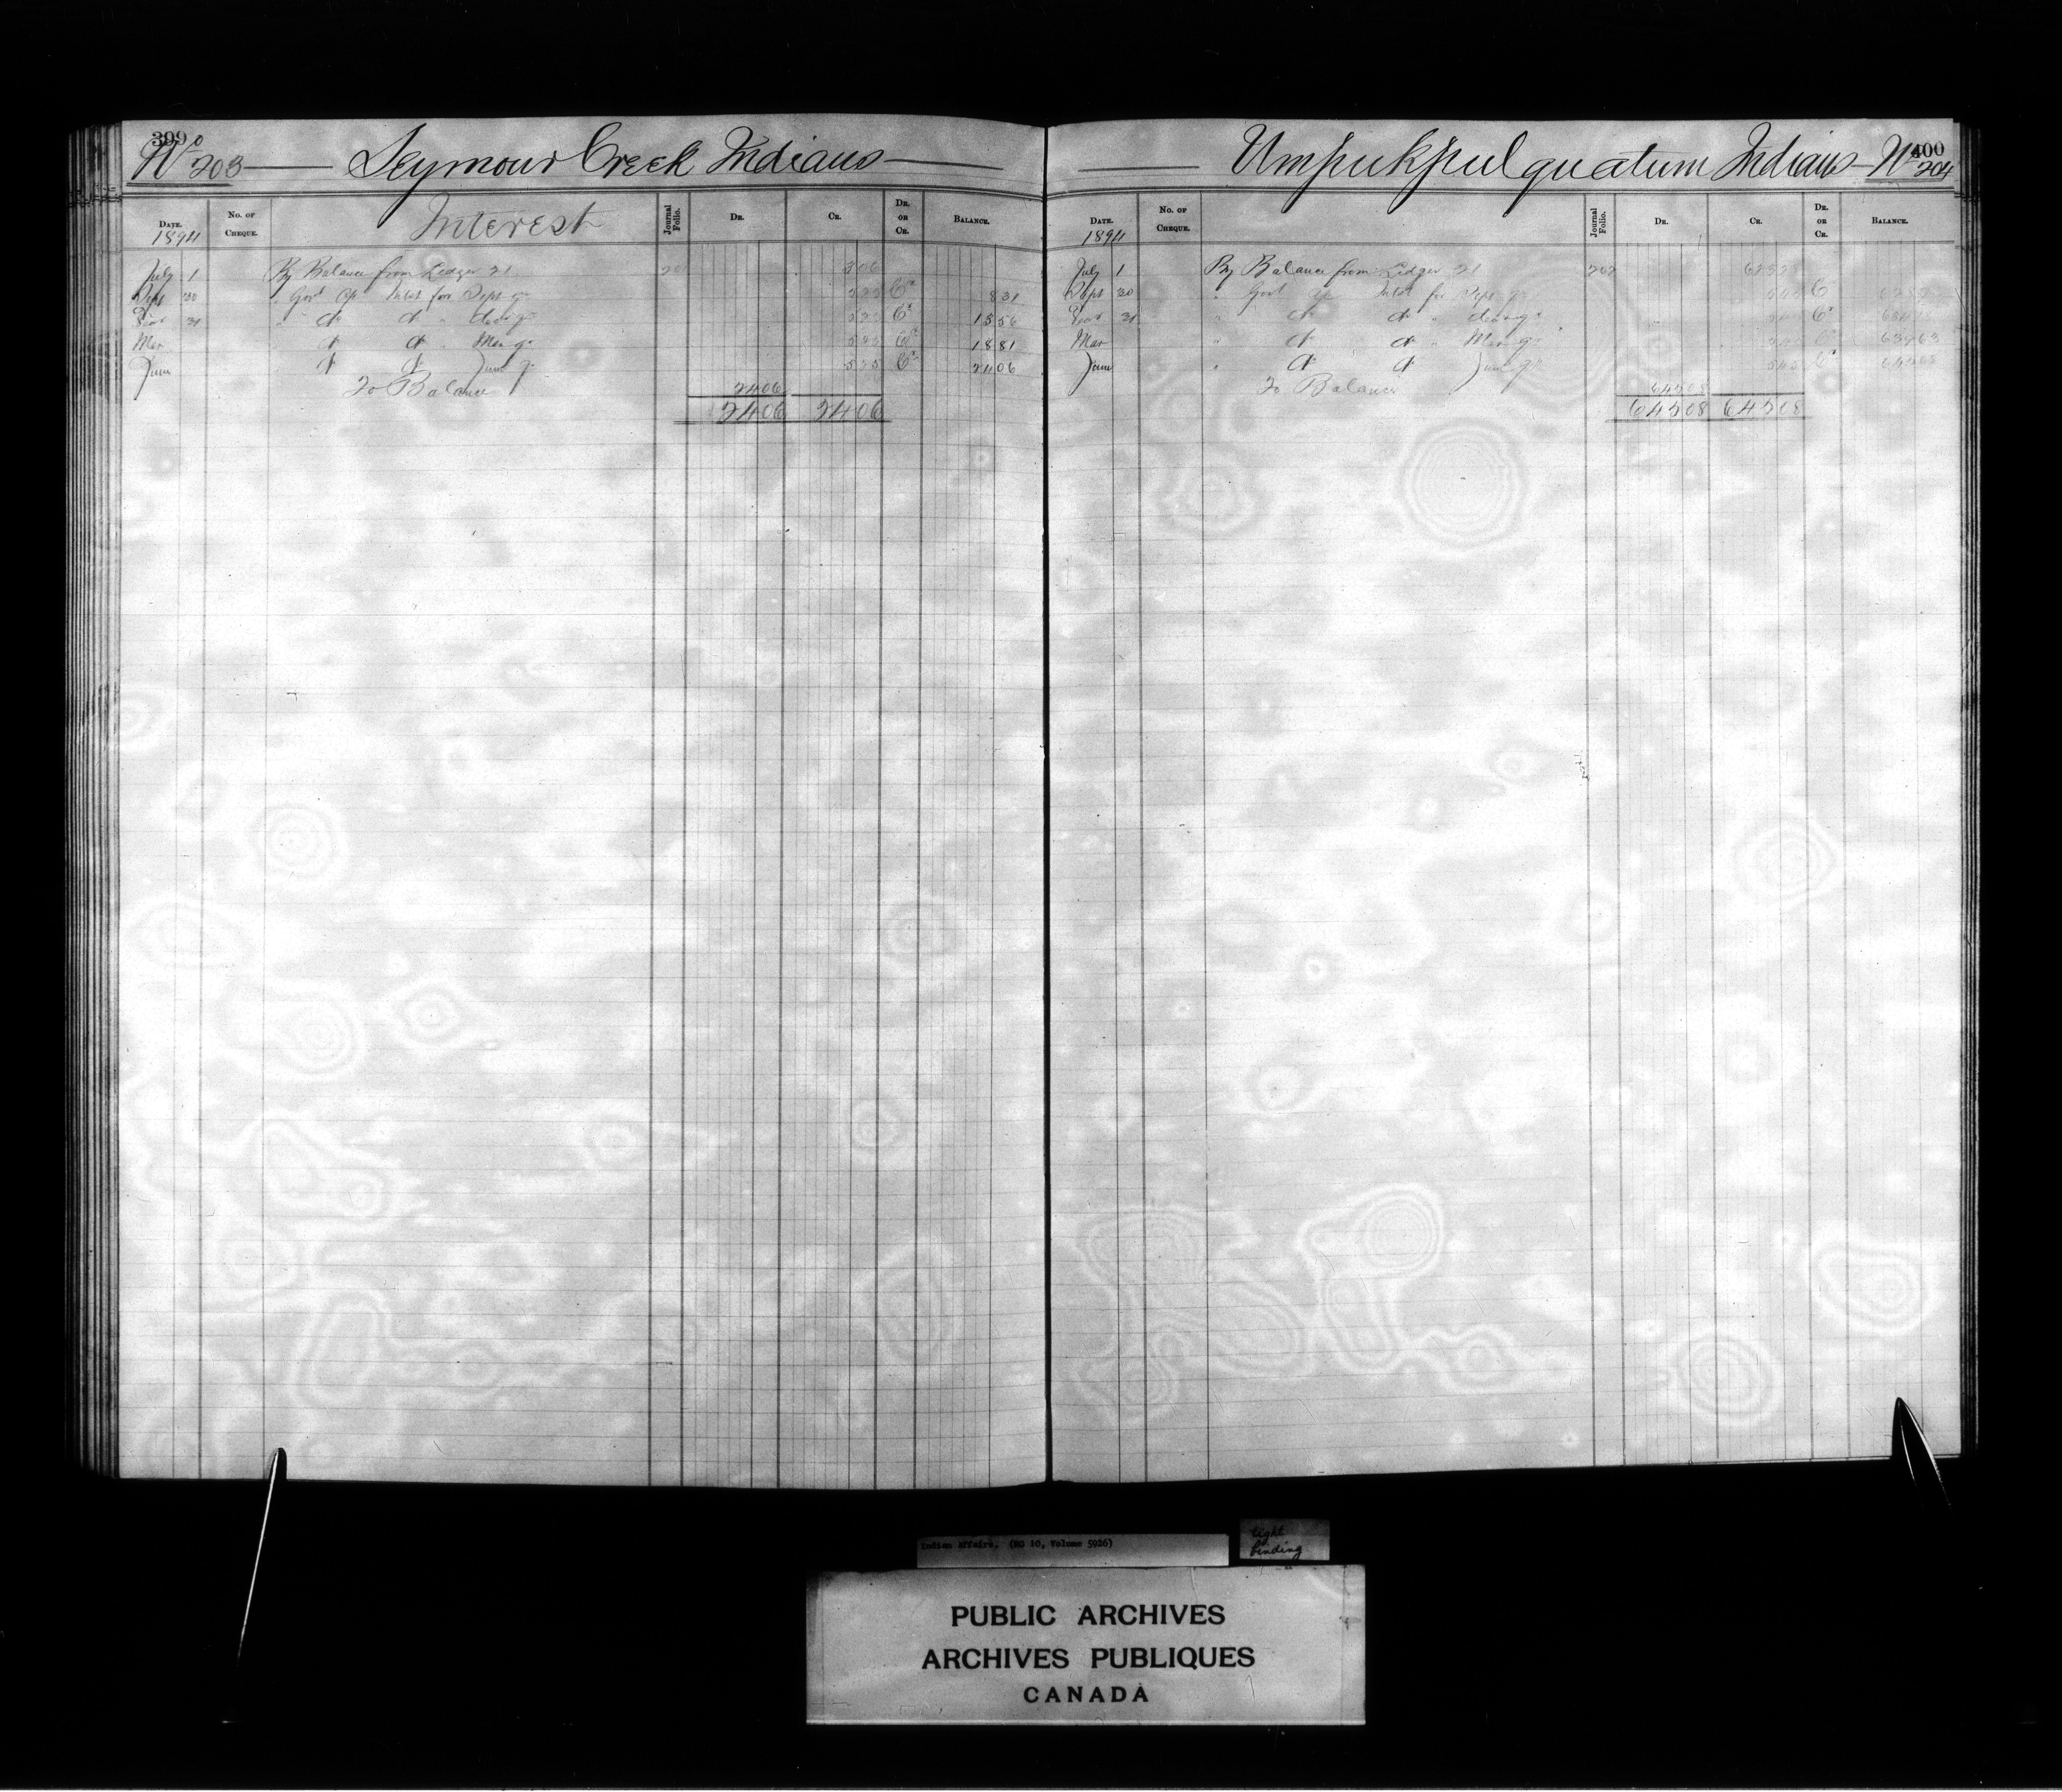 399
No 203 Seymour Creek Indians
Date. No. of Cheque. Interest Journal Folio. Dr. Cr. Dr. or Cr. Balance.
1894
July 1 By Balance from Ledger 21 201 3 06
Sept 30 " Govt Intst for Sept qr 5 25 Cr 8 31
31 " do do " 5 25 Cr 13 56
Mar " do do " Mar qr 5 25 Cr 18 81
June do do June qr 5 25 Cr 24 06
To Balance 24 06
24 06 24 06
400
Umpukpulquatum Indians No 204
Date. No. of Cheque. Journal Folio. Dr. Cr. Dr. or Cr. Balance.
1894
July 1 By Balance from Ledger 21 202
Sept 30 " Govt Intst for Sept qr Cr
31 " do do " Cr
Mar " do do " Mar qr Cr 639 63
June " do do June qr 5 45 Cr 645 08
To Balance 645 08
645 08 645 08
Indian Affairs. (RG 10, Volume 5926)
tight binding
PUBLIC ARCHIVES
ARCHIVES PUBLIQUES
CANADA